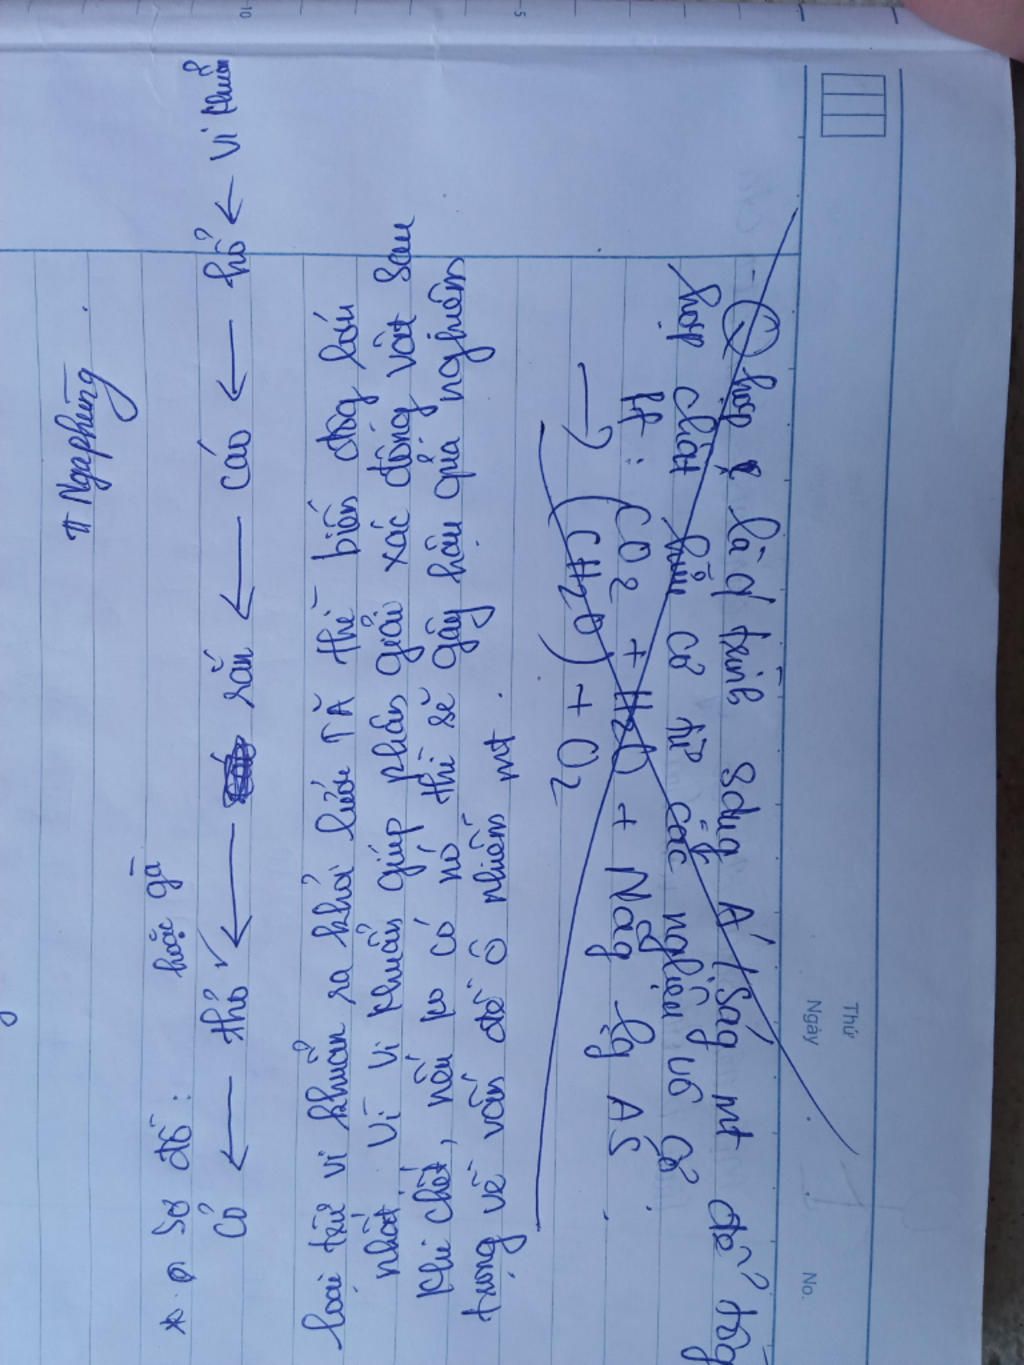 Thứ
Ngày
No.
Qhợp là q/ trình sdụg A'/Ság mt để tổg
hợp chất hữu cơ từ các nguyên vô cơ
Pt : CO2 + H2O + Năg lg AS
→ (CH2O) + O2
# Ngaphung
* Sơ đồ : hoặc gà
Cỏ ← thỏ ← rắn ← cáo ← hổ ← vi khuẩn
loài trừ vi khuẩn ra khỏi lưới TĂ thì biến độg lớn
nhất. Vì vi khuẩn giúp phân giải xác động vật sau
khi chết, nếu ko có nó thì sẽ gây hậu quả nghiêm
trọng về vấn đề ô nhiễm mt.
10
5